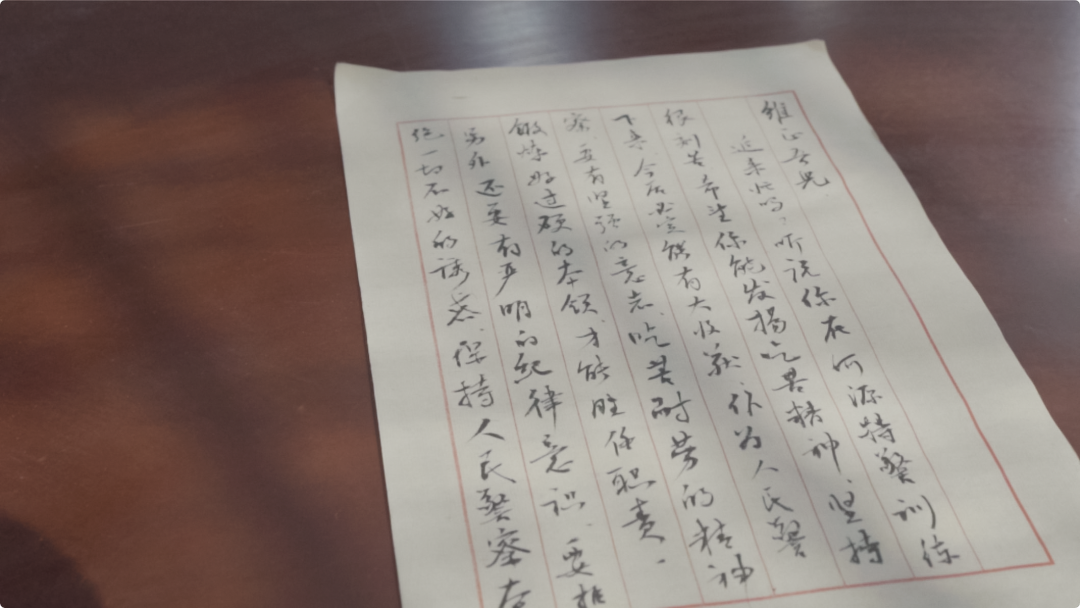 维正吾儿
近来忙吗，听说你在河源特警训练
很刻苦希望你能发扬吃苦精神，坚持
下去，今后必定能有大收获，作为人民警
察要有坚强的意志，吃苦耐劳的精神
锻炼好过硬的本领，才能胜任职责。
另外还要有严明的纪律意识，要拒
绝一切不好的诱惑，保持人民警察本